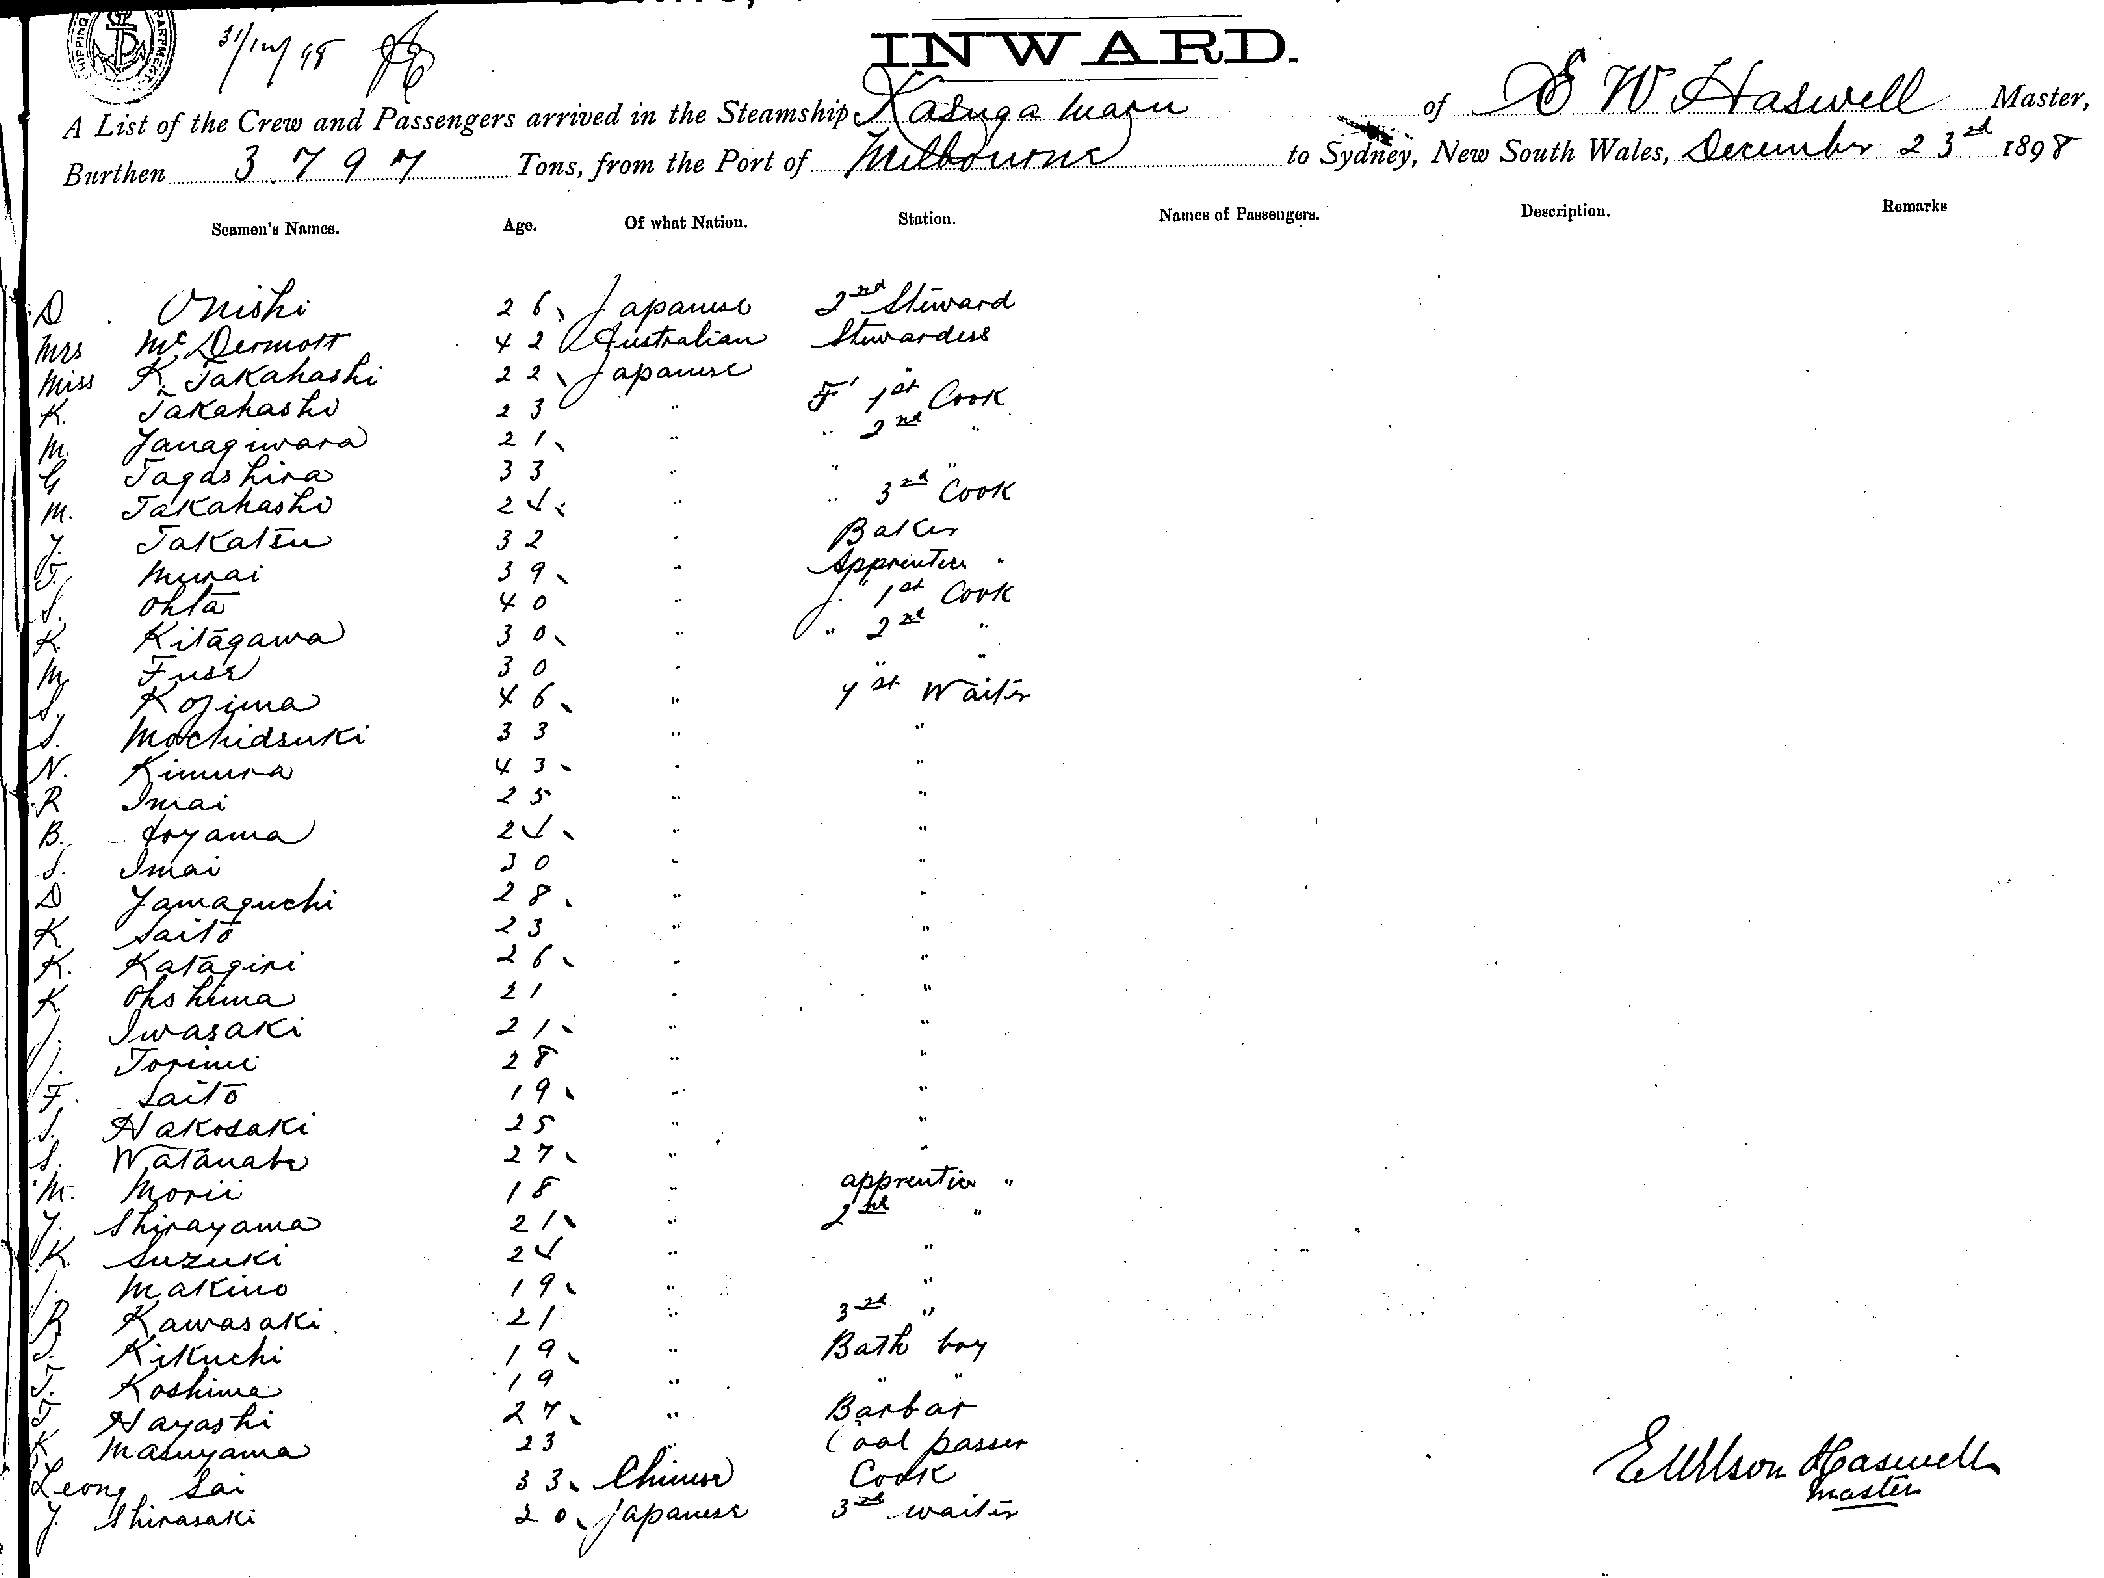 INWARD.
31/12/98
A List of the Crew and Passengers arrived in the Steamship Kasuga Maru of E W Haswell Master,
Burthen 3797 Tons, from the Port of Melbourne to Sydney, New South Wales, December 23rd 1898
Seamen's Names. Age. Of what Nation. Station. Names of Passengers. Description. Remarks
D Onishi 26 Japanese 2nd Steward
Mrs McDermott 42 Australian Stewardess
Miss K. Takahashi 22 Japanese "
K. Takahashi 23 " F 1st Cook
M. Yanagiwara 21 " " 2nd "
G Tagashira 33 " " "
M. Takahashi 24 " " 3rd Cook
Y. Takatsu 32 " Baker
T. Murai 39 " Apprentice "
S. Ohta 40 " J. 1st Cook
K. Kitagawa 30 " " 2nd "
M. Fuse 30 " " "
S. Kojima 46 " 1st Waiter
S. Mochidsuki 33 " "
N. Kimura 43 " "
R Imai 25 " "
B. Aoyama 24 " "
S. Imai 30 " "
D Yamaguchi 28 " "
K Saito 23 " "
K. Katagiri 26 " "
K Ohshima 21 " "
J. Iwasaki 21 " "
J. Torimi 28 " "
F. Saito 19 " "
S. Hakosaki 25 " "
S. Watanabe 27 " "
M. Morii 18 " apprentice "
Y. Shirayama 21 " 2nd "
K. Suzuki 24 " "
J. Makino 19 " "
R Kawasaki 21 " 3rd "
S. Kikuchi 19 " Bath boy
T. Koshima 19 " " "
T Hayashi 27 " Barbar
K Masuyama 23 " Coal passer
Leong Sai 33 Chinese Cook
Y. Shirasaki 20 Japanese 3rd waiter
E Wilson Haswell
Master